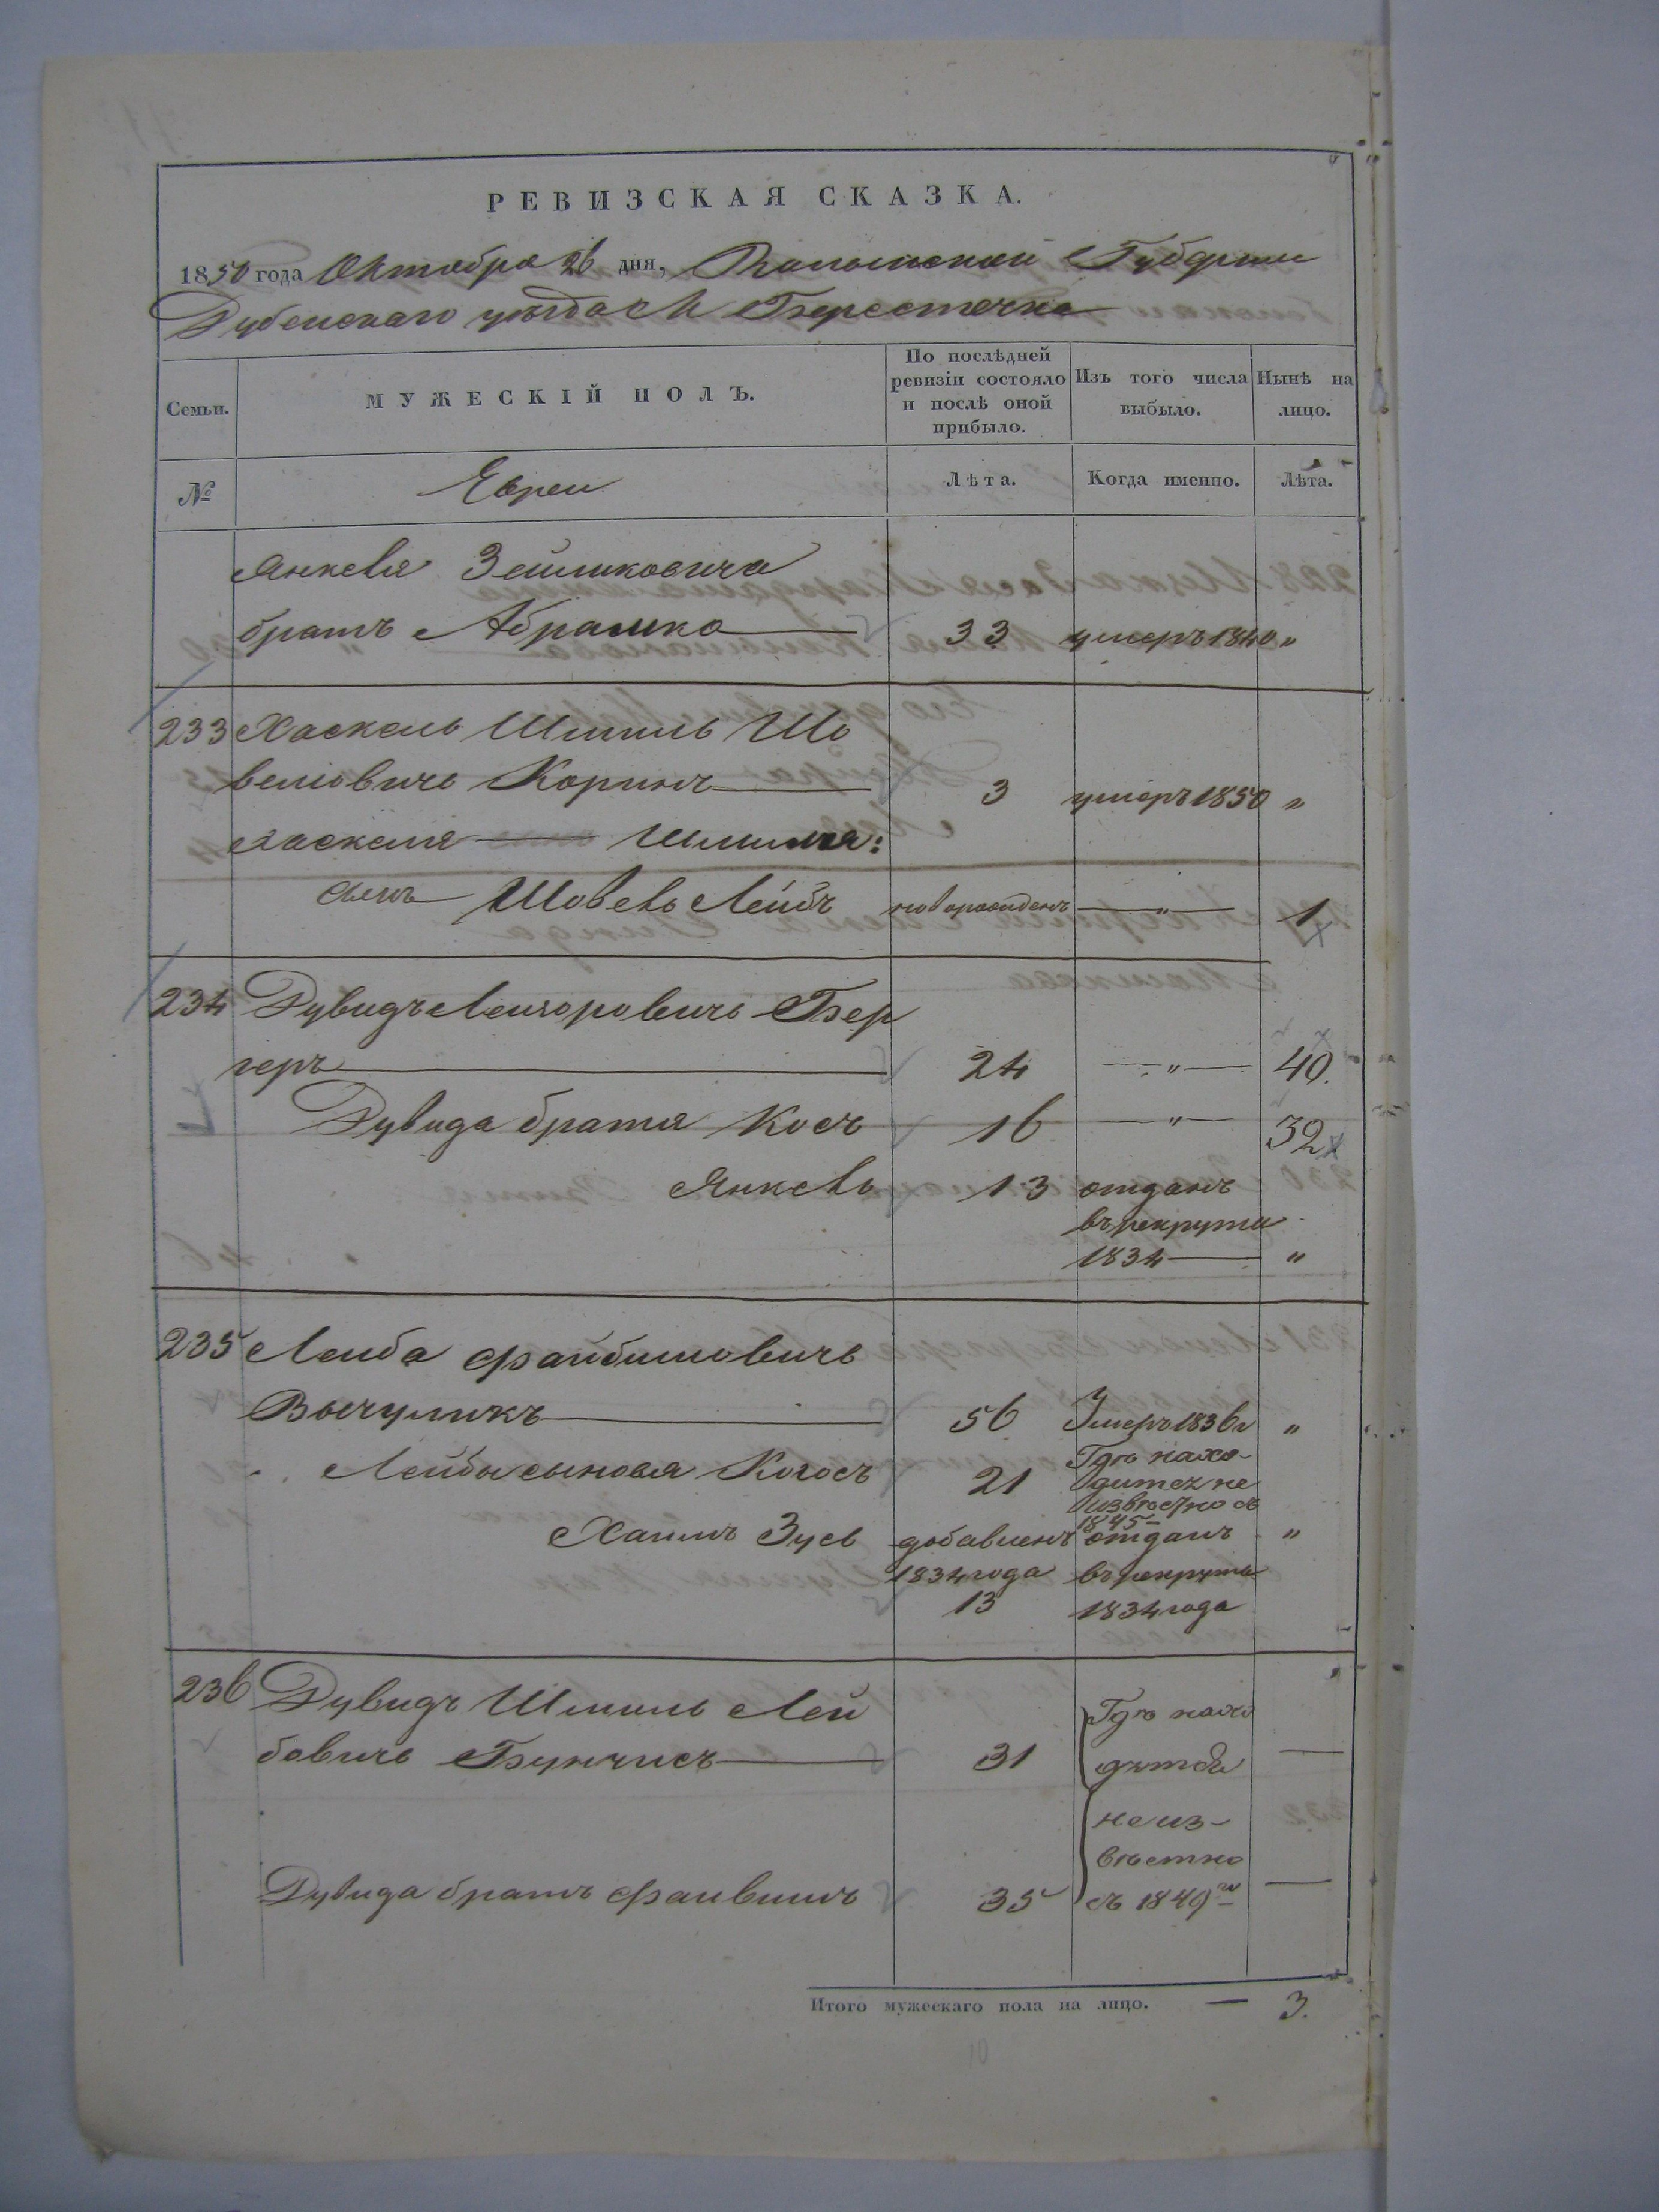 РЕВИЗСКАЯ СКАЗКА.
1850 года Октября 26 дня, Волынской Губерніи
Дубенскаго уѣзда М Берестечка
Семьи.
МУЖЕСКІЙ ПОЛЪ.
По послѣдней ревизіи состояло и послѣ оной прибыло.
Изъ того числа выбыло.
Нынѣ на лицо.
№ Евреи Лѣта. Когда именно. Лѣта.
Янкеля Зейликовича
братъ Абрамко 33 умеръ 1840 „
233 Хаскель Шмиль Шо
велювичь Коринъ 3 умеръ 1850 „
Хаскеля Шмиля:
сынъ Шовель Лейбъ новорожденъ — „ — 1
234 Дувидъ Лейзоровичь Бер
геръ 24 — „ — 40.
Дувида братья Косъ 16 — „ — 32
Янкель 13 отданъ
въ рекруты
1834 — „
235 Лейба Файбишовичь
56 Умеръ 1836 г „
Лейбы сыновья Когосъ 21 Гдѣ нахо-
дится не
извѣстно съ
1845 —
Хаимъ Зусь добавленъ отданъ „
1834 года въ рекруты
13 1834 года
236 Дувидъ Шмиль Лей
бовичь Бунчисъ 31 Гдѣ нахо
дятся —
неиз-
вѣстно
Дувида братъ Файвишъ 35 съ 1849 го —
Итого мужескаго пола на лицо. — 3.
10